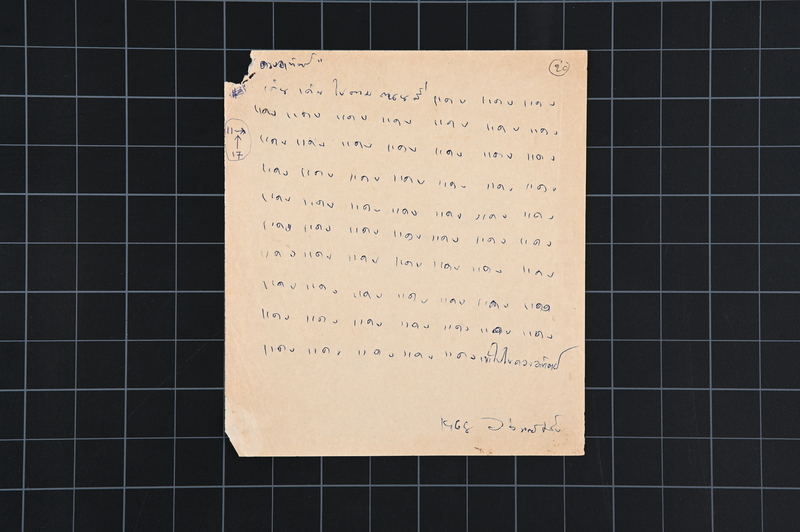 ดวงอาทิตย์"
๒๐
เดิน เดิน ไปตาม ถนนที่ แดง แดง แดง
แดง แดง แดง แดง แดง แดง แดง
แดง แดง แดง แดง แดง แดง แดง
แดง แดง แดง แดง แดง แดง แดง
แดง แดง แดง แดง แดง แดง แดง
แดง แดง แดง แดง แดง แดง แดง
แดง แดง แดง แดง แดง แดง แดง
แดง แดง แดง แดง แดง แดง แดง
แดง แดง แดง แดง แดง แดง แดง
แดง แดง แดง แดง แดง เข้าไปในดวงอาทิตย์
17